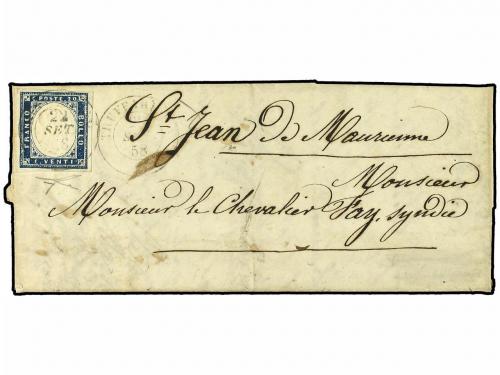 C. POSTE 20
FRANCO
BOLLO
C. VENTI
22
SET
58
St Jean de Maurienne
Monsieur
Monsieur le Chevalier Fay, syndic